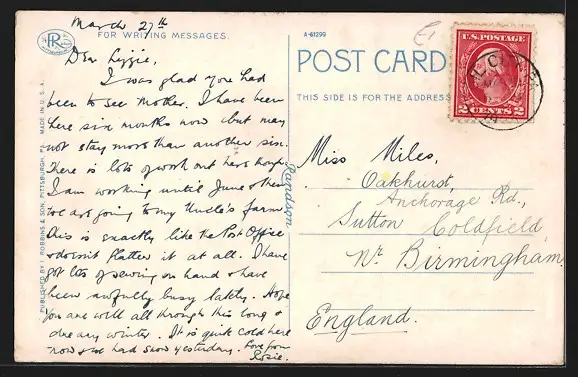 March 27th
FOR WRITING MESSAGES.
Dear Lizzie,
I was glad you had
been to see Mother. I have been
here six months now but may
not stay more than another six.
There is lots of work out here though
I am working until June & then
we are going to my Uncle's farm
This is exactly like the Post Office
& doesn't flatter it at all. I have
got lots of sewing on hand & have
been awfully busy lately. Hope
you are well all through this long &
dreary winter. It is quite cold here
now & we had snow yesterday. Love from
Rosie.
PUBLISHED BY I. ROBBINS & SON, PITTSBURGH, PA. MADE IN U. S. A.
A-61299
POST CARD
THIS SIDE IS FOR THE ADDRESS
U.S. POSTAGE
2 CENTS 2
Miss Miles,
Oakhurst,
Anchorage Rd.,
Sutton Coldfield
Nr Birmingham
England.